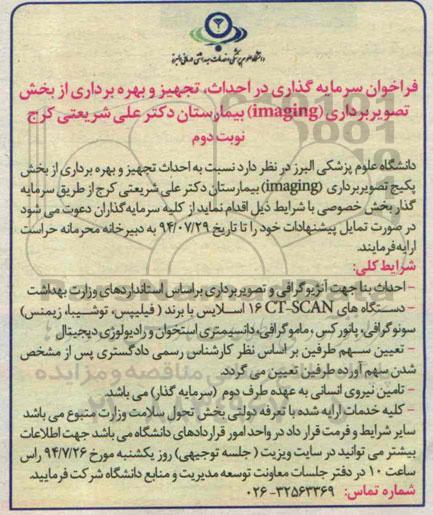 دانشگاه علوم پزشکی و خدمات بهداشتی درمانی البرز
فراخوان سرمایه گذاری در احداث، تجهیز و بهره برداری از بخش
تصویربرداری (imaging) بیمارستان دکتر علی شریعتی کرج
نوبت دوم
دانشگاه علوم پزشکی البرز در نظر دارد نسبت به احداث تجهیز و بهره برداری از بخش
پکیج تصویربرداری (imaging) بیمارستان دکتر علی شریعتی کرج از طریق سرمایه
گذار بخش خصوصی با شرایط ذیل اقدام نماید از کلیه سرمایه گذاران دعوت می شود
در صورت تمایل پیشنهادات خود را تا تاریخ ۹۴/۰۷/۲۹ به دبیرخانه محرمانه حراست
ارایه فرمایند.
شرایط کلی:
– احداث بنا جهت آنژیوگرافی و تصویربرداری براساس استانداردهای وزارت بهداشت
– دستگاه های CT-SCAN ۱۶ اسلایس با برند ( فیلیپس، توشیبا، زیمنس)
سونوگرافی، پانورکس ، ماموگرافی، دانسیمتری استخوان و رادیولوژی دیجیتال
– تعیین سهم طرفین بر اساس نظر کارشناس رسمی دادگستری پس از مشخص
شدن سهم آورده طرفین تعیین می گردد.
– تامین نیروی انسانی به عهده طرف دوم (سرمایه گذار) می باشد.
– کلیه خدمات ارایه شده با تعرفه دولتی بخش تحول سلامت وزارت متبوع می باشد
سایر شرایط و فرمت قرار داد در واحد امور قراردادهای دانشگاه می باشد جهت اطلاعات
بیشتر می توانید در سایت ویزیت ( جلسه توجیهی) روز یکشنبه مورخ ۹۴/۷/۲۶ راس
ساعت ۱۰ در دفتر جلسات معاونت توسعه مدیریت و منابع دانشگاه شرکت فرمایید.
شماره تماس: ۳۲۵۶۳۳۶۹-۰۲۶